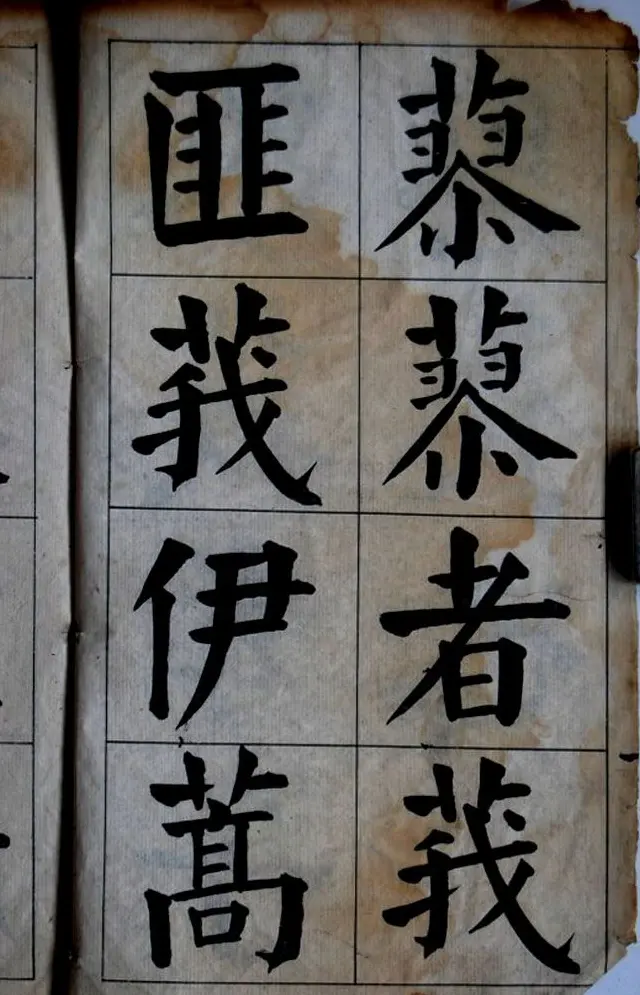 蓼蓼者莪
匪莪伊蒿